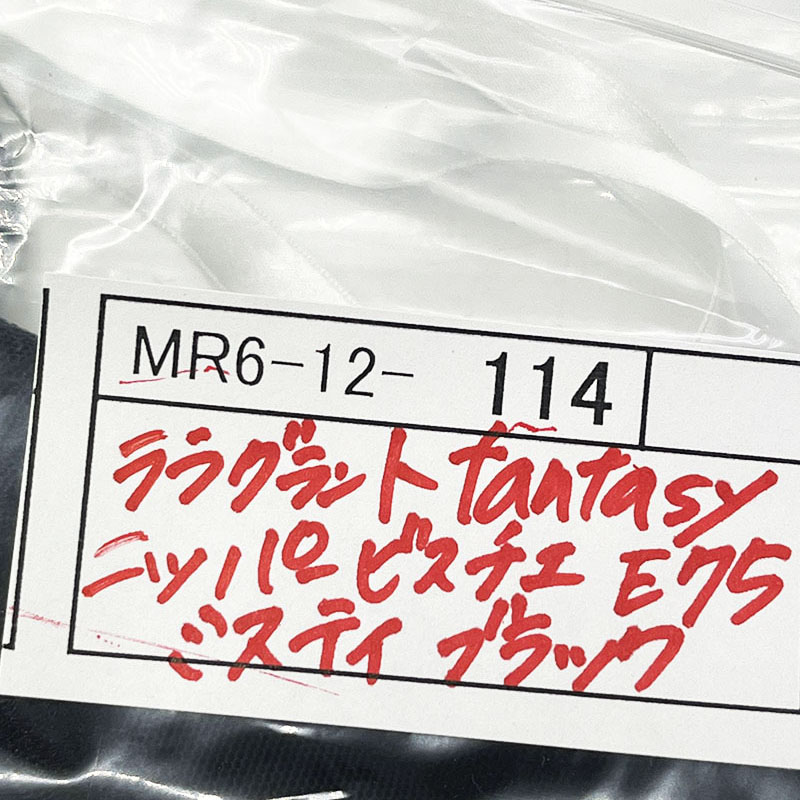 MR6-12- 114
ララグラント fantasy
ニッパー ビスチェ E75
ミスティ ブラック